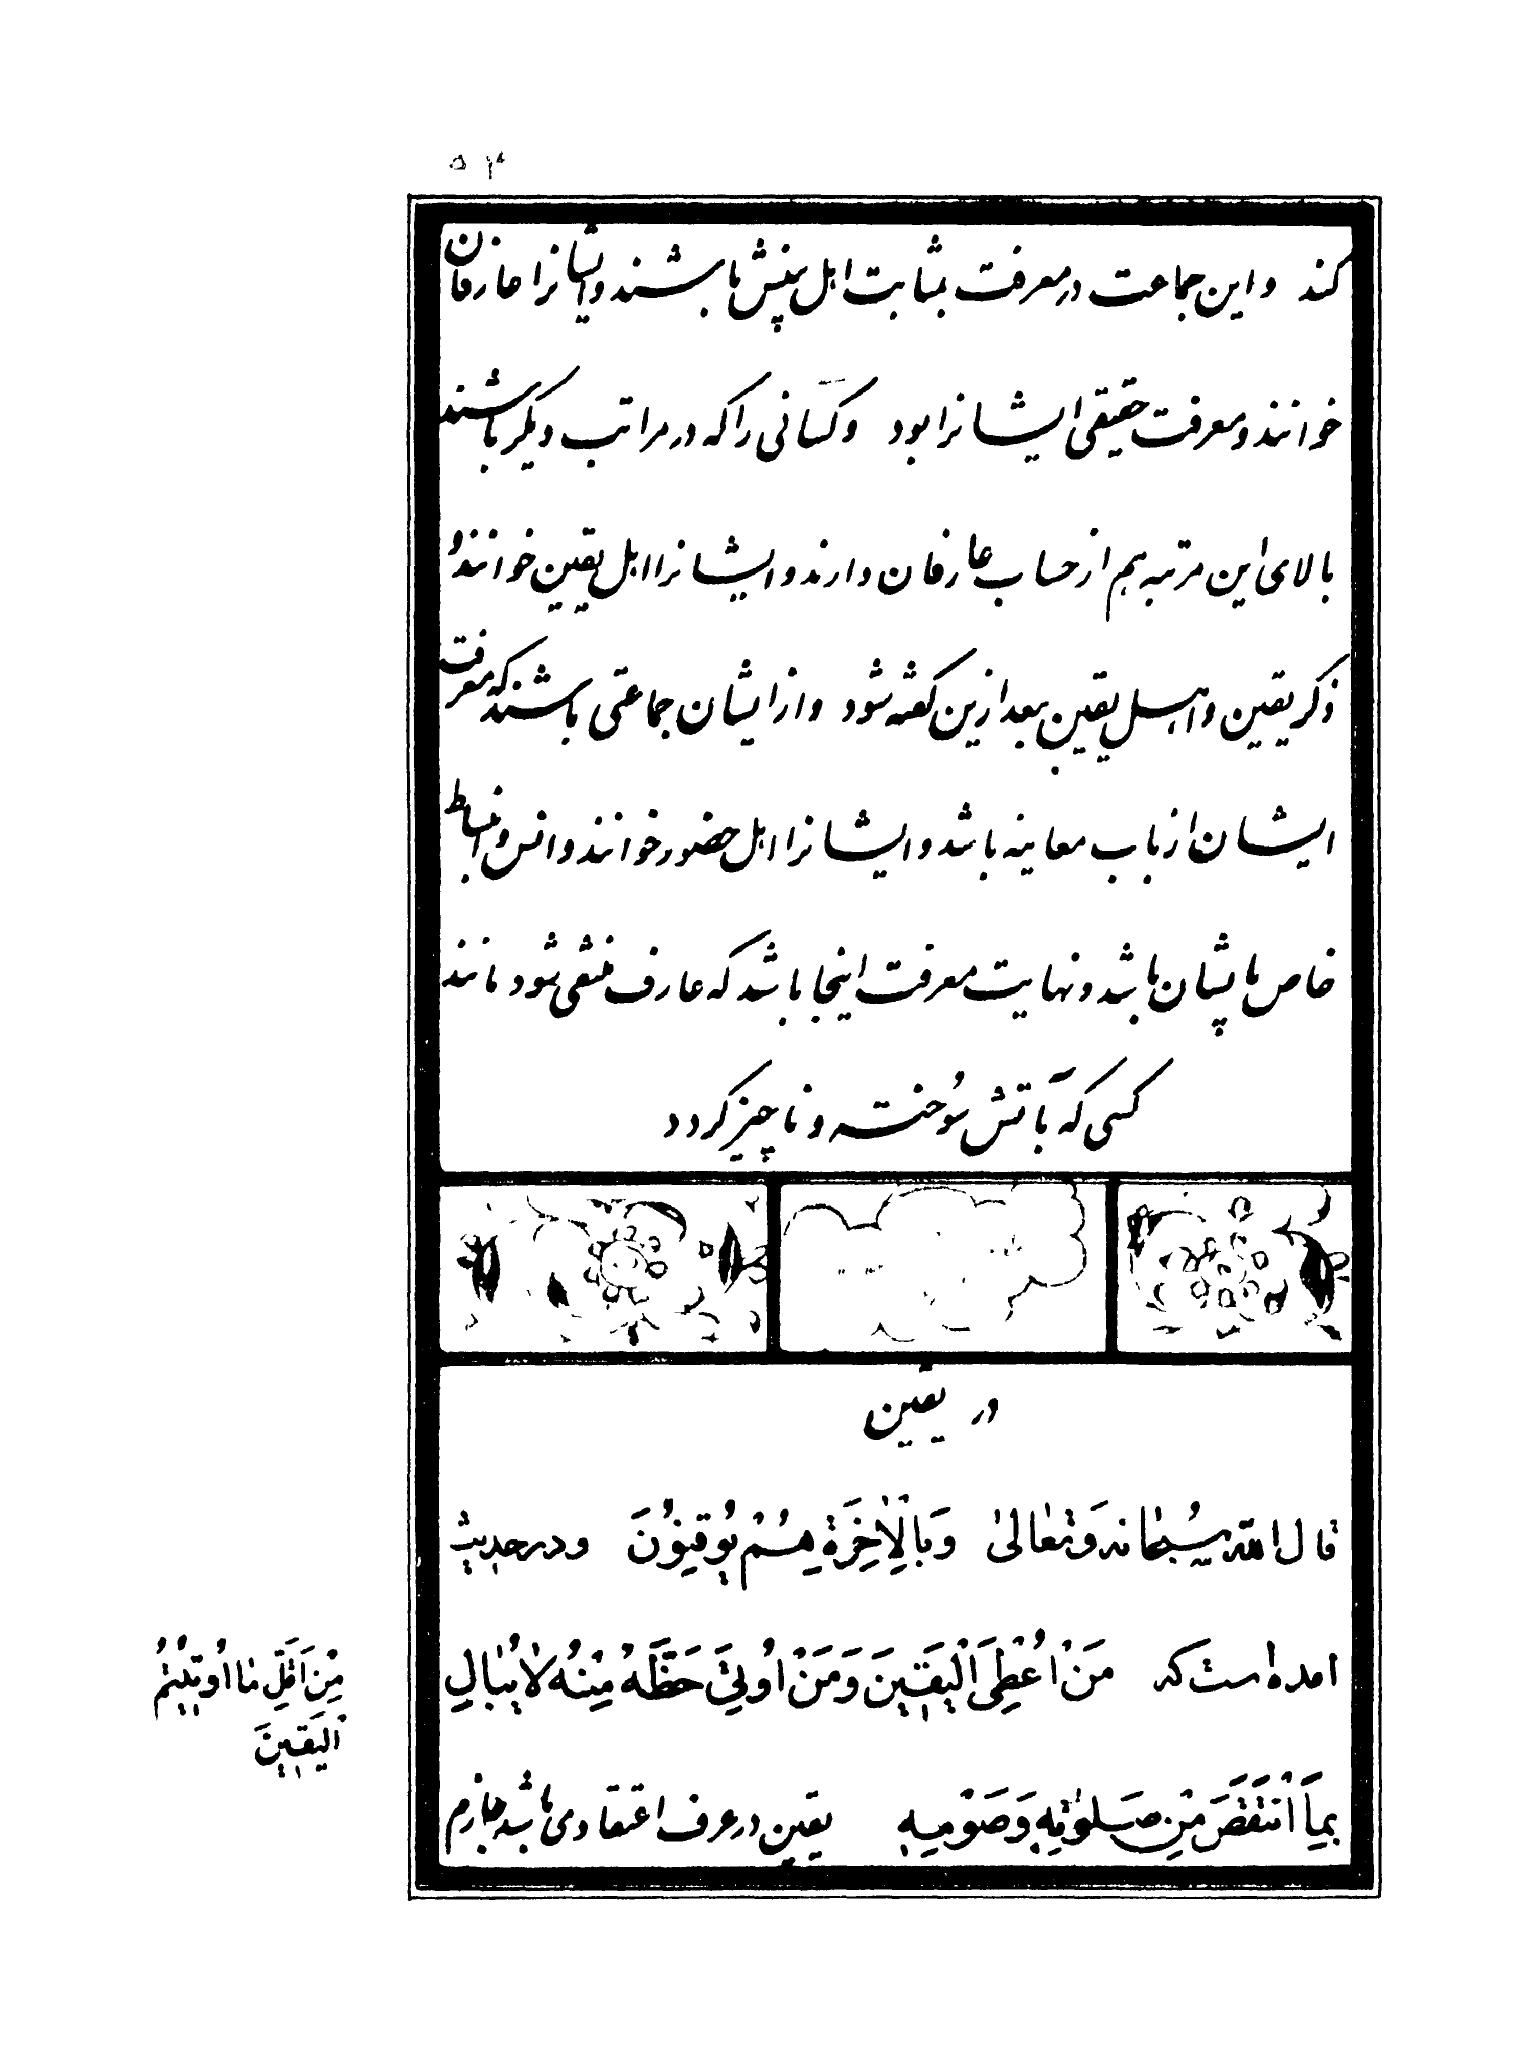 ۵۴
کند و این جماعت در معرفت بمثابت اهل بینش باشند و ایشانرا عارفان
خوانند و معرفت حقیقی ایشانرا بود و کسانی را که در مراتب دیگر باشند
بالای این مرتبه هم از حساب عارفان دارند و ایشانرا اهل یقین خوانند و
ذکر یقین و اهل یقین بعد ازین گفته شود و از ایشان جماعتی باشند که معرفت
ایشان از باب معاینه باشد و ایشانرا اهل حضور خوانند و انس و انبساط
خاص بایشان باشد و نهایت معرفت اینجا باشد که عارف منتفی شود مانند
کسی که بآتش سوخته و ناچیز گردد
در یقین
قال الله سُبحانه وَتعالىٰ وَبِالْاٰخِرَةِ هُمْ يُوقِنُونَ و در حدیث
آمده است که مَنْ اُعْطِیَ الْیَقینَ وَمَنْ اُوتِیَ حَظَّهُ مِنْهُ لاٰیُبٰالِ
بِمَا انْتَقَصَ مِنْ صَلوٰتِهِ وَصَوْمِهِ یقین در عرف اعتقادی باشد جازم
مِنْ اَقَلِّ مٰا اُوتِیتُمُ
الْیَقینَ